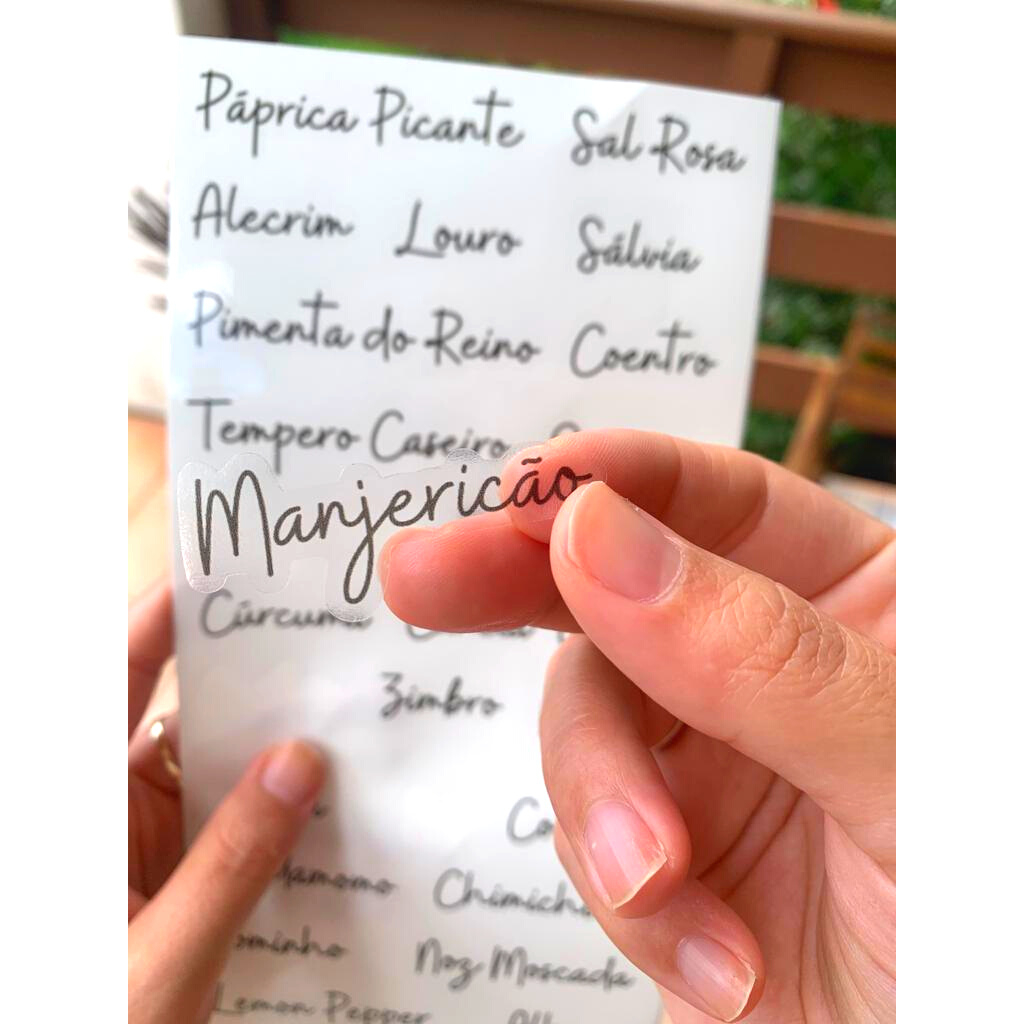 Páprica Picante Sal Rosa
Alecrim Louro Sálvia
Pimenta do Reino Coentro
Tempero Caseiro
Manjericão
Cúrcuma
Zimbro
Noz Moscada
Lemon Pepper